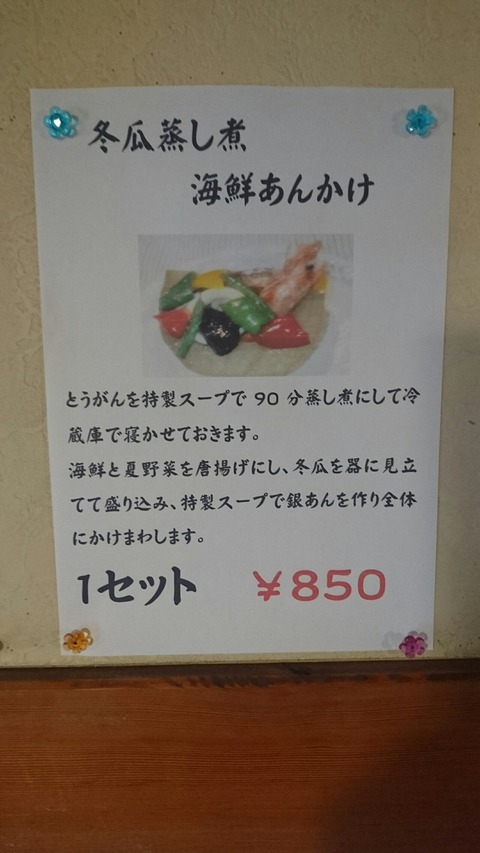 冬瓜蒸し煮
海鮮あんかけ
とうがんを特製スープで 90 分蒸し煮にして冷
蔵庫で寝かせておきます。
海鮮と夏野菜を唐揚げにし、冬瓜を器に見立
てて盛り込み、特製スープで銀あんを作り全体
にかけまわします。
1セット ￥850